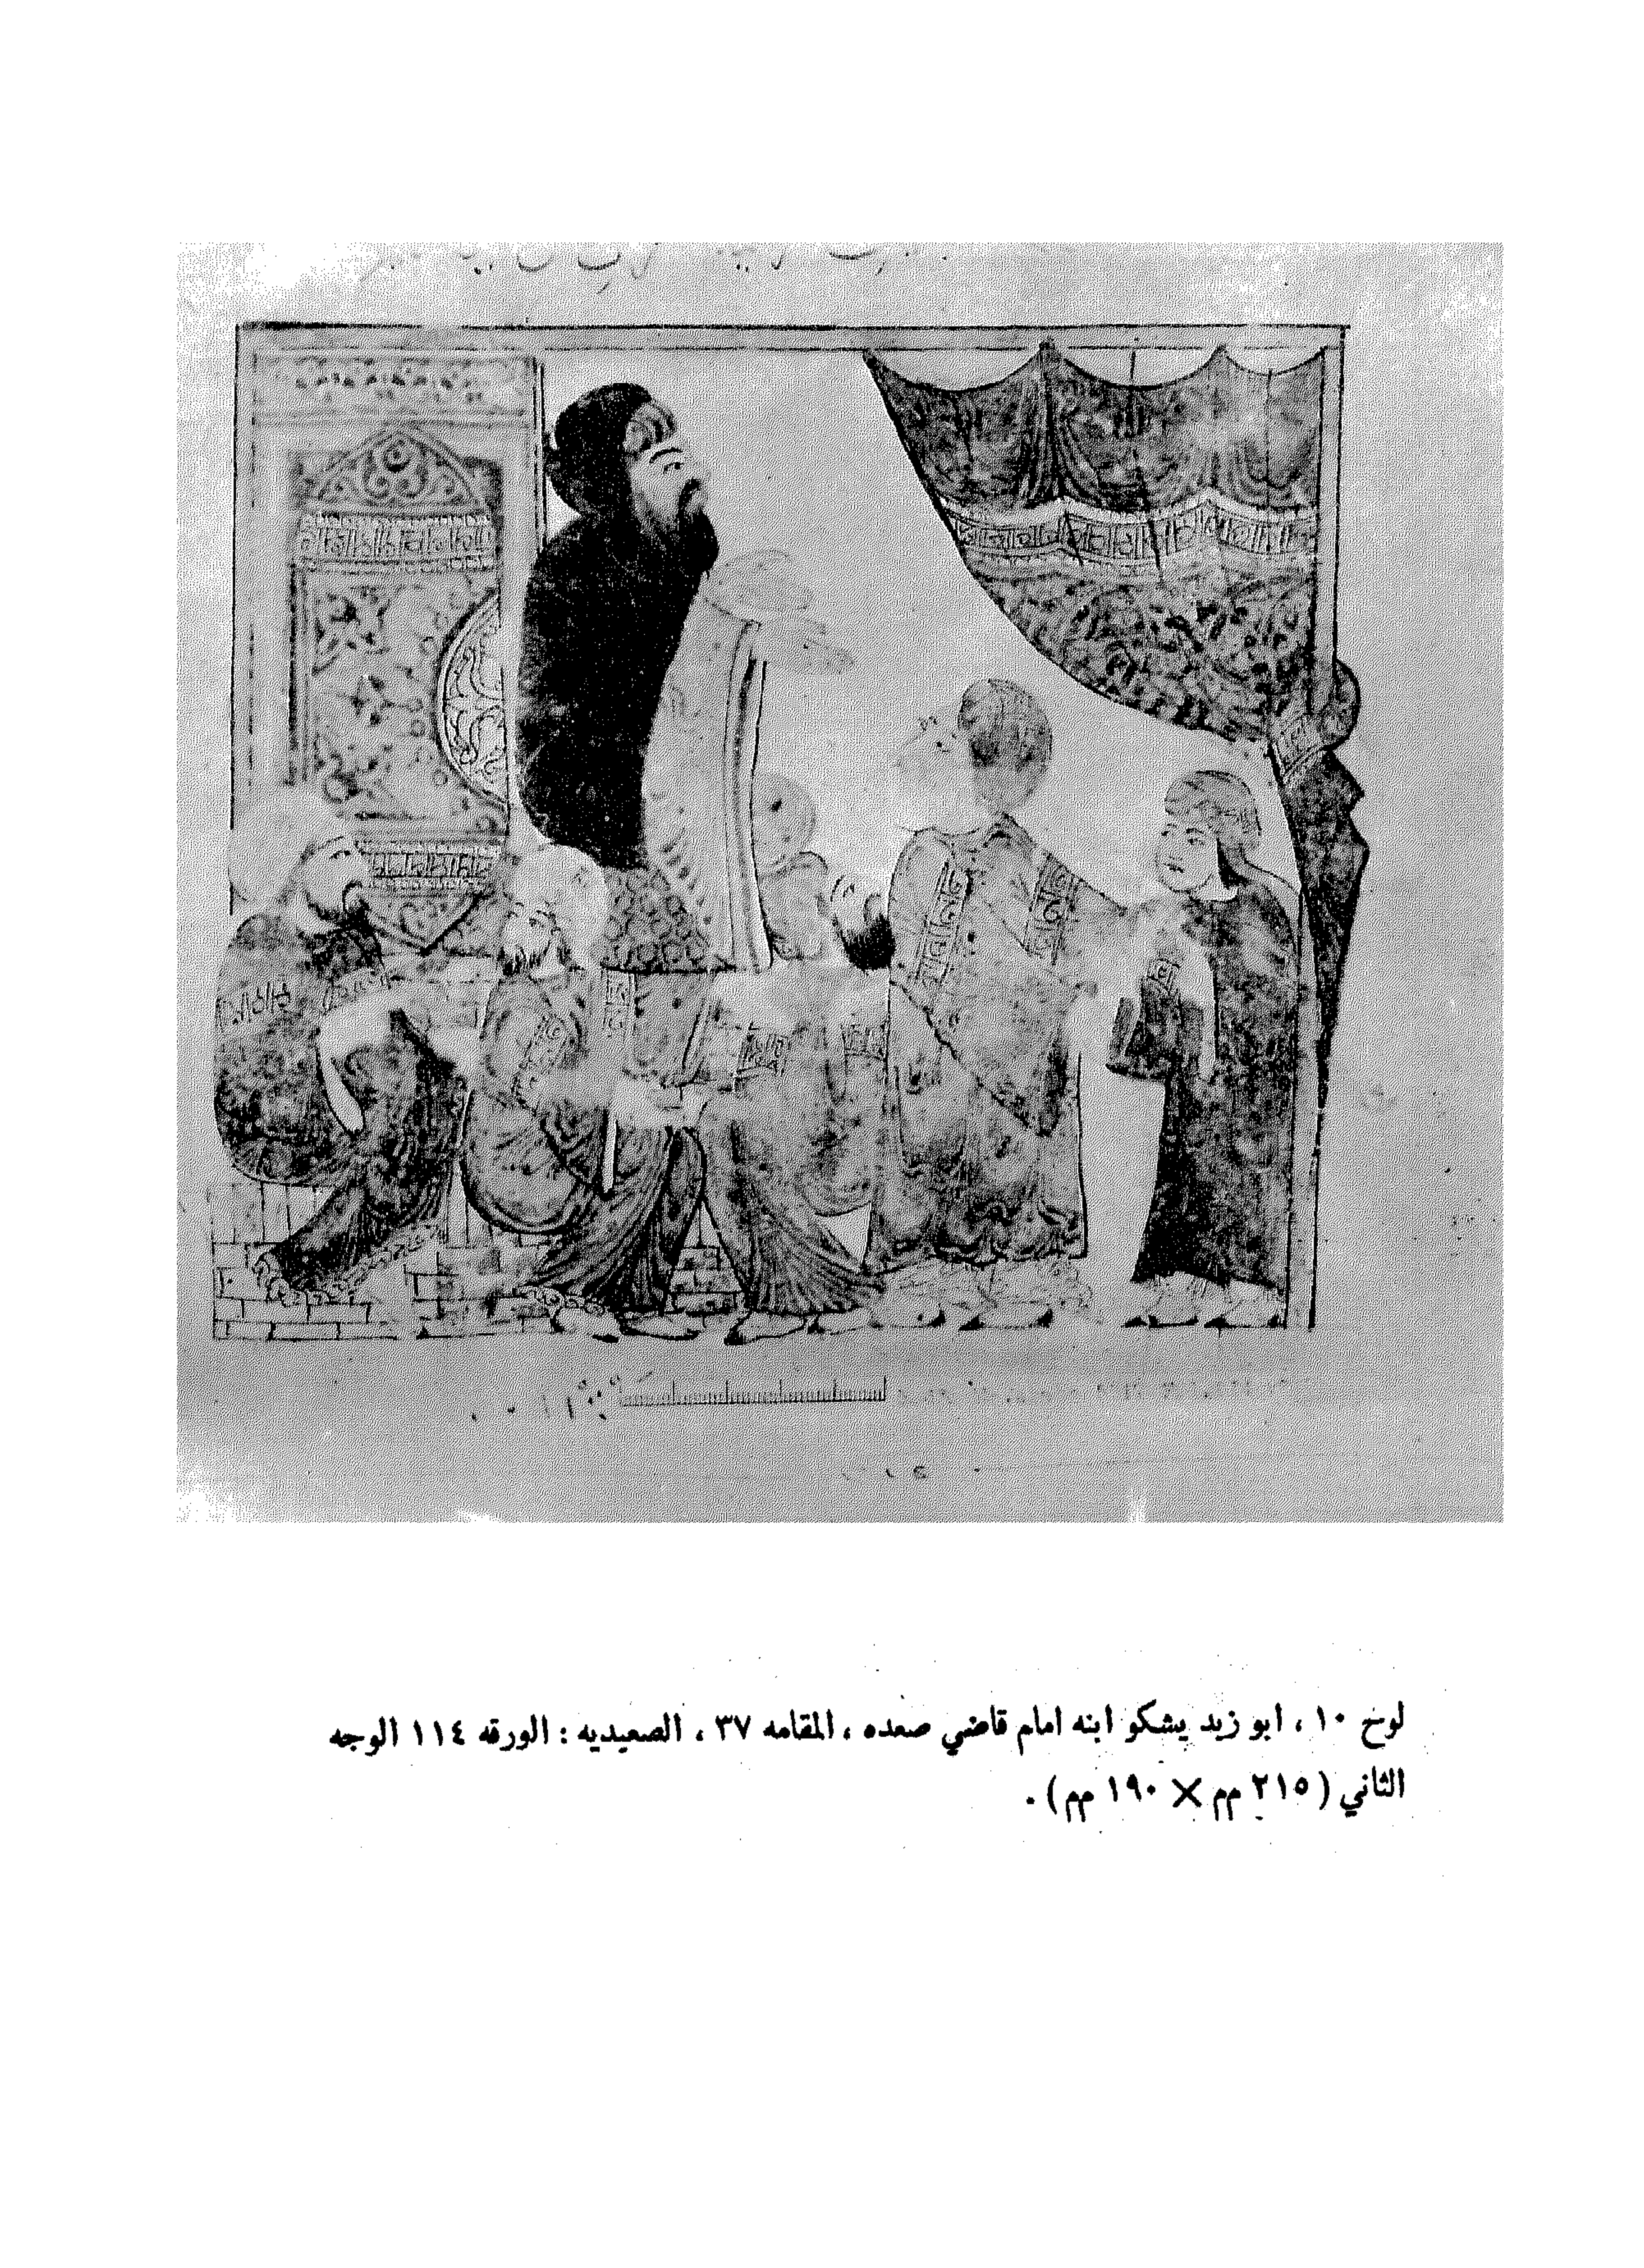 لوح ١٠ ، ابو زيد يشكو ابنه امام قاضي صعده ، المقامه ٣٧ ، الصعيديه : الورقه ١١٤ الوجه
الثاني ( ٢١٥ مم × ١٩٠ مم ) .